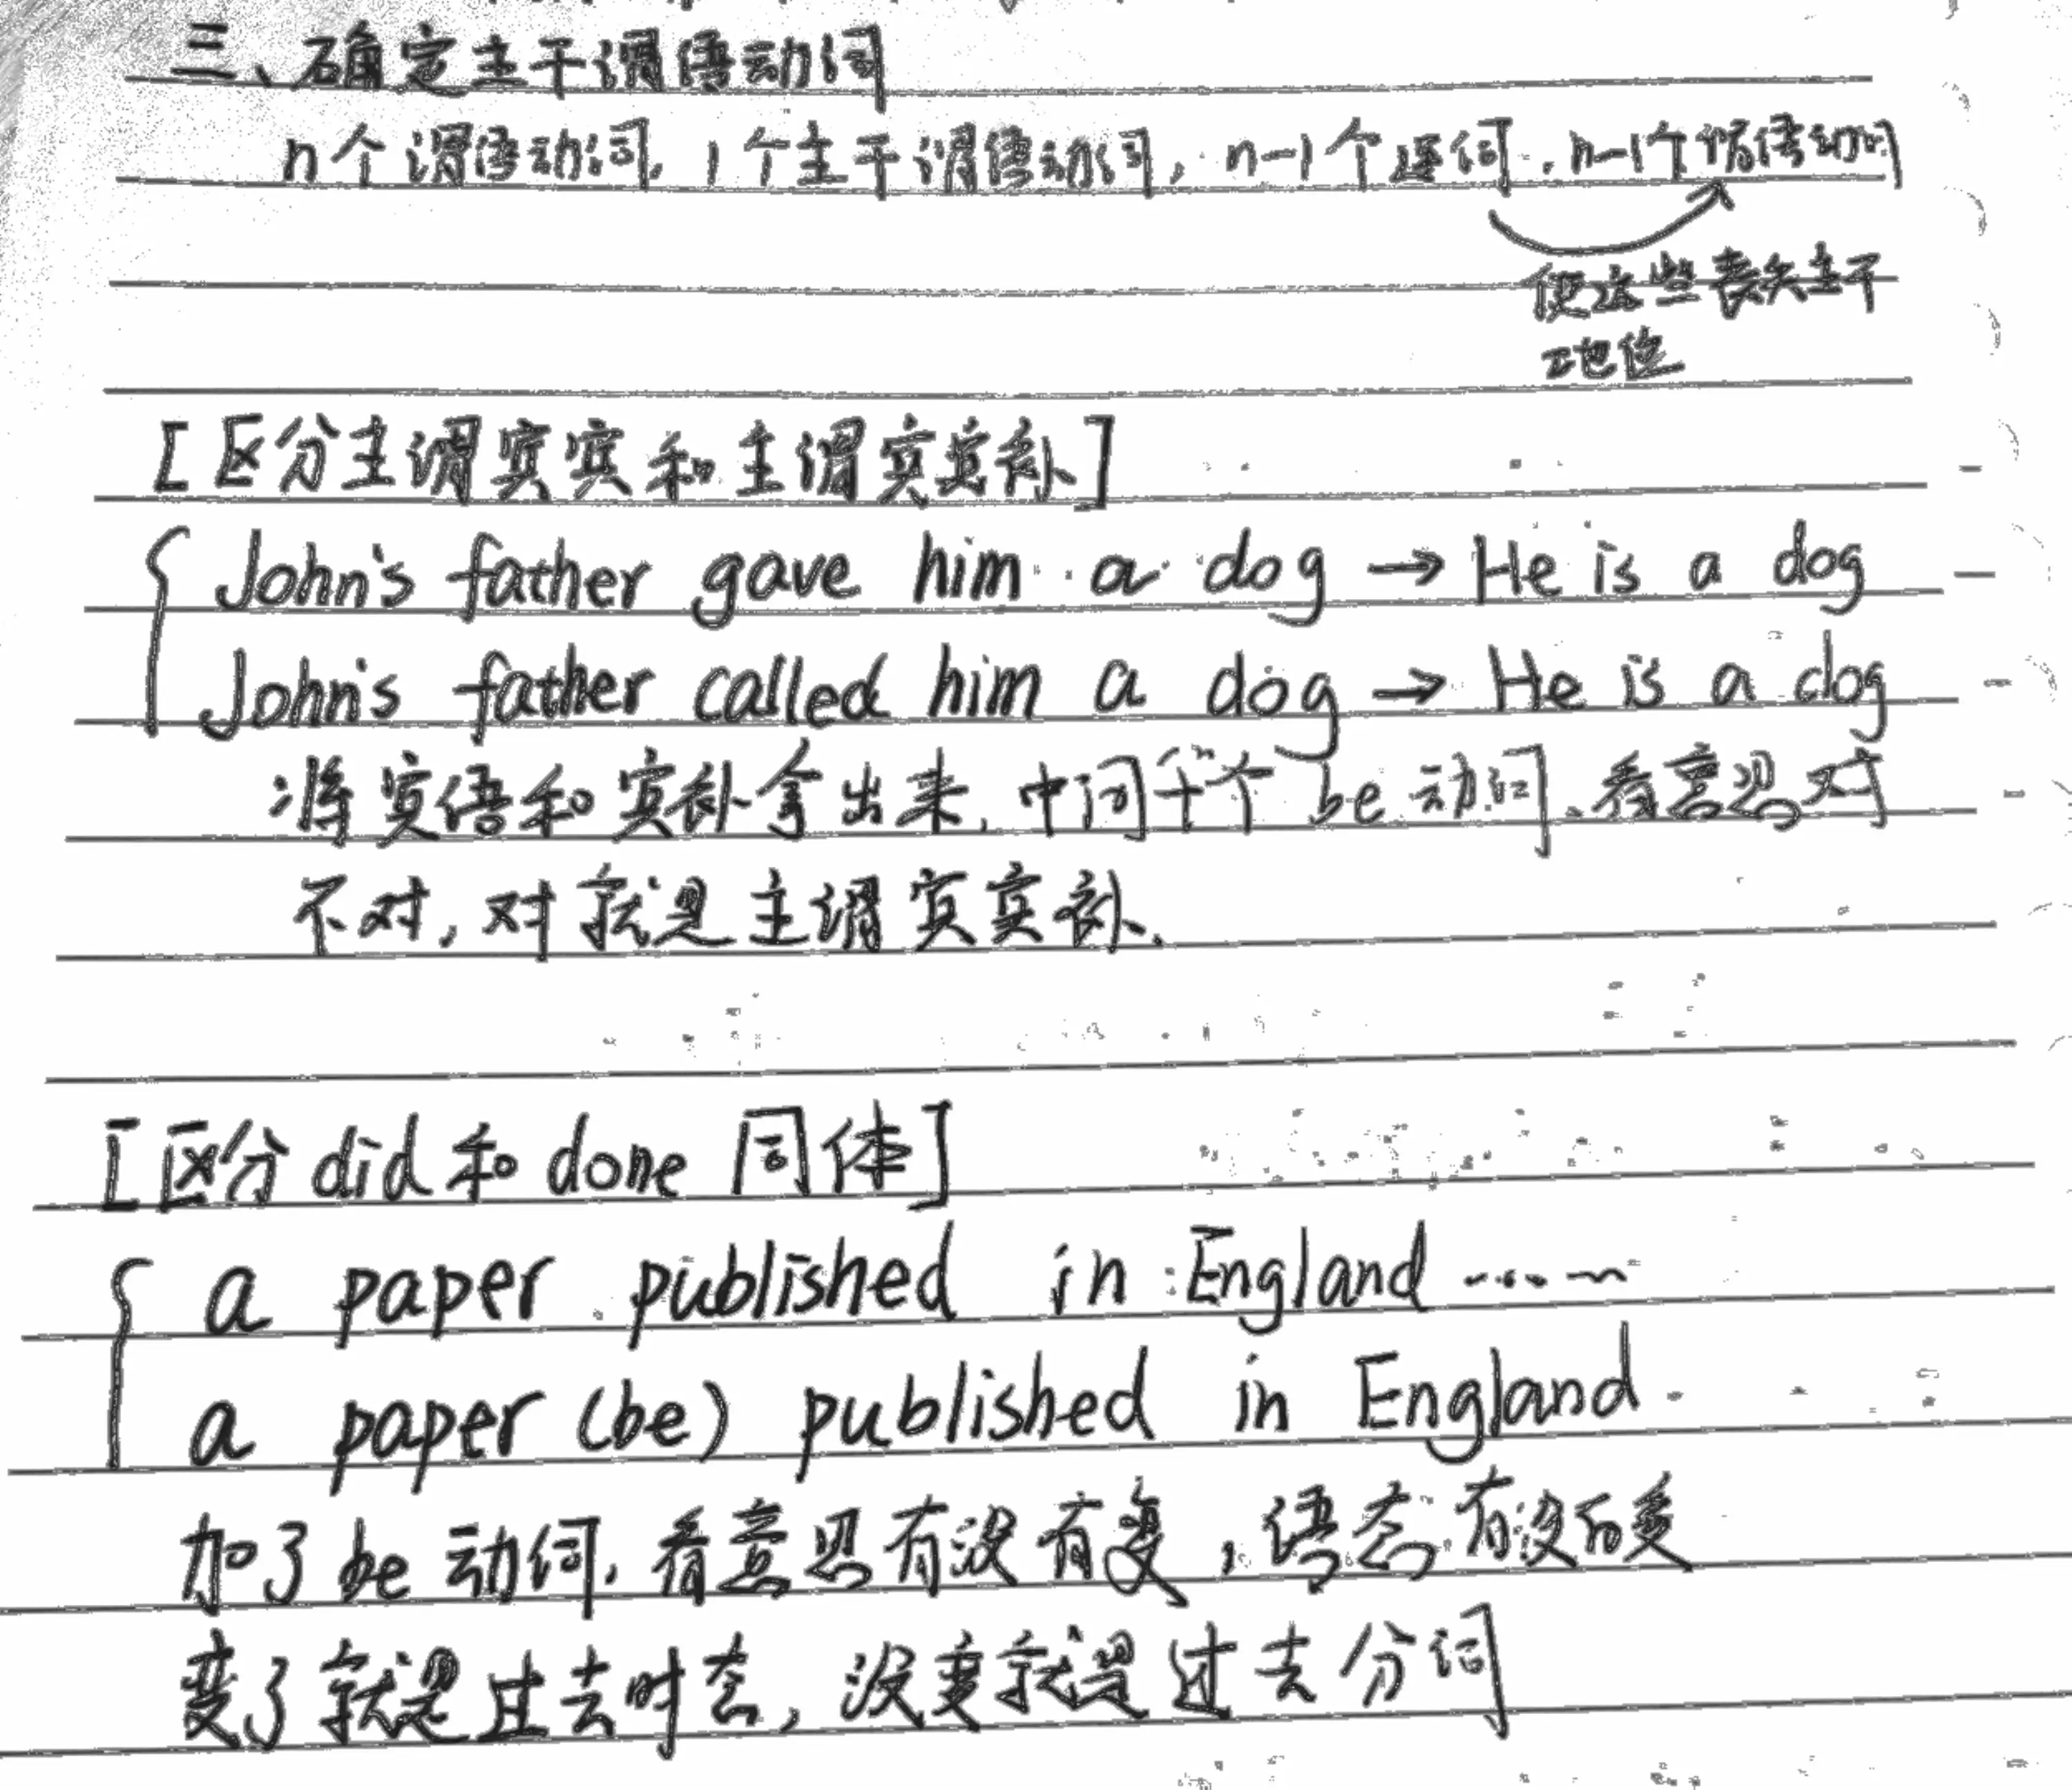 三、确定主干谓语动词
n个谓语动词, 1个主干谓语动词, n-1个连词, n-1个谓语动词
使这些丧失主干
地位
[区分主谓宾宾和主谓宾宾补]
John's father gave him a dog → He is a dog
John's father called him a dog → He is a dog
将宾语和宾补拿出来, 中间干个be动词、看意思对
不对, 对就是主谓宾宾补.
[区分did和done同体]
a paper published in England ……
a paper (be) published in England
加了be动词, 看意思有没有变, 语态有没有变
变了就是过去时态, 没变就是过去分词